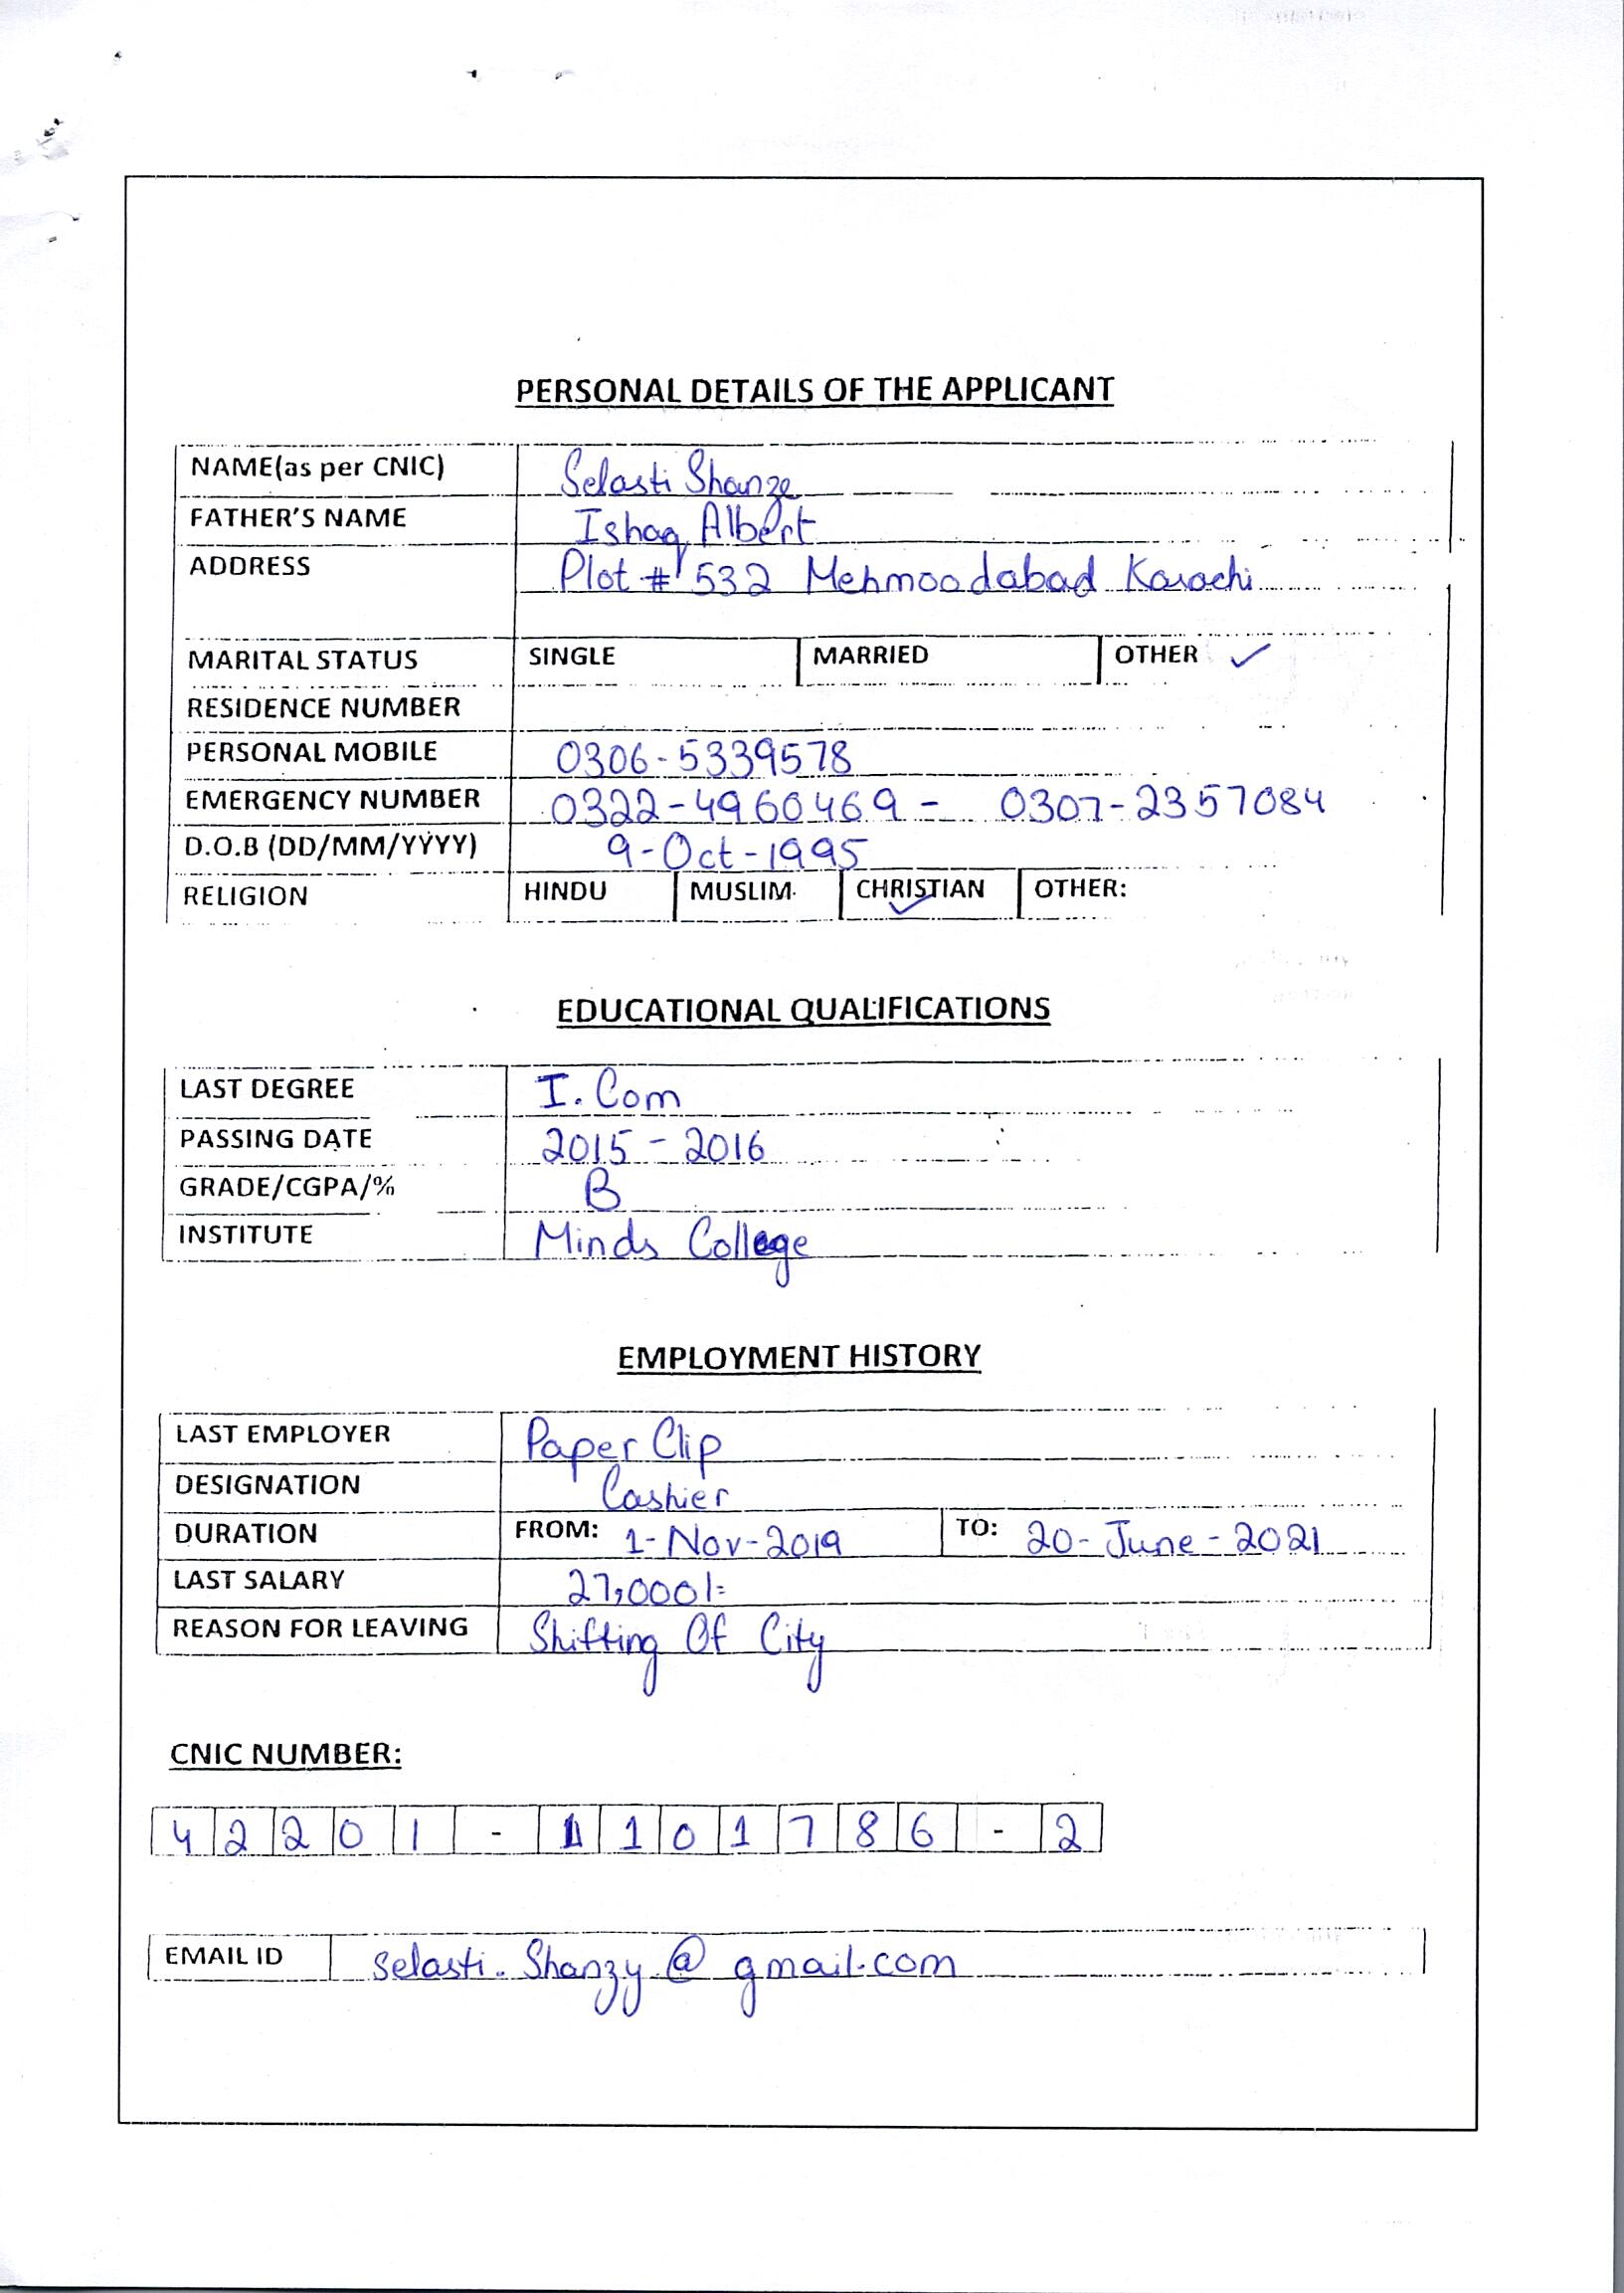 PERSONAL DETAILS OF THE APPLICANT
NAME(as per CNIC) Selasti Shanze
FATHER'S NAME Ishaq Albert
ADDRESS Plot # 532 Mehmoodabad Karachi
MARITAL STATUS SINGLE MARRIED OTHER ✓
RESIDENCE NUMBER
PERSONAL MOBILE 0306-5339578
EMERGENCY NUMBER 0322-4960469 - 0307-2357084
D.O.B (DD/MM/YYYY) 9-Oct-1995
RELIGION HINDU MUSLIM CHRISTIAN ✓ OTHER:
EDUCATIONAL QUALIFICATIONS
LAST DEGREE I.Com
PASSING DATE 2015 - 2016
GRADE/CGPA/% B
INSTITUTE Minds College
EMPLOYMENT HISTORY
LAST EMPLOYER Paper Clip
DESIGNATION Cashier
DURATION FROM: 1-Nov-2019 TO: 20-June-2021
LAST SALARY 27,000/=
REASON FOR LEAVING Shifting Of City
CNIC NUMBER:
42201-1101786-2
EMAIL ID selasti.Shanzy@gmail.com